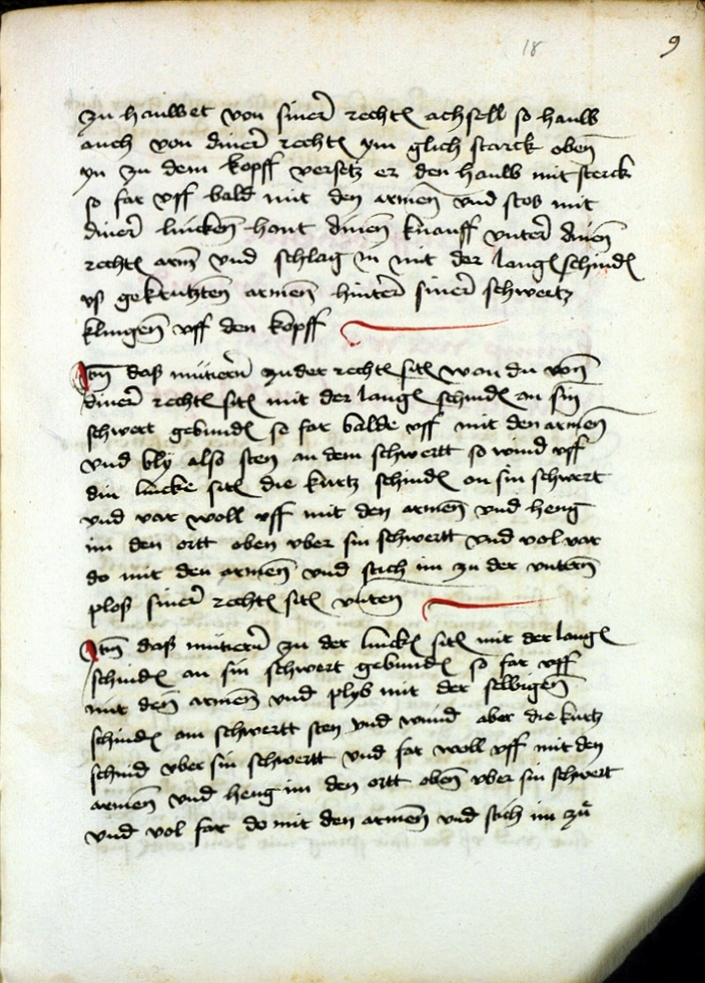 18 9
zu hauwet von siner rechten achsell so hauw
auch von diner rechten ym glich starck oben
yn zu dem kopff versetz er den hauw mit sterck
so far uff bald mit den armen und stos mit
diner lincken hant dinen knauff unter dinen
rechten arm und schlag in mit der langen schinden
us gekrutzten armen hinter siner schwertz
klingen uff den kopff
Item das mutiern zu der rechten siten wan du von
diner rechten siten mit der langen schinden an sin
schwert gebinden so far balde uff mit den armen
und bly also sten an dem schwertt so wind uff
din lincke siten die kurtz schinden an sin schwert
und var woll uff mit den armen und heng
im den ortt oben uber sin schwertt und vol var
do mit den armen und stich im zu der untern
plos siner rechten siten unten
Item das mutiern zu der lincken siten mit der langen
schinden an sin schwert gebinden so far uff
mit den armen und plyb mit der selbigen
schinden am schwertt sten und wind aber die kurtz
schind uber sin schwertt und far woll uff mit den
armen und heng im den ortt oben uber sin schwert
und vol far do mit den armen und stich im zu